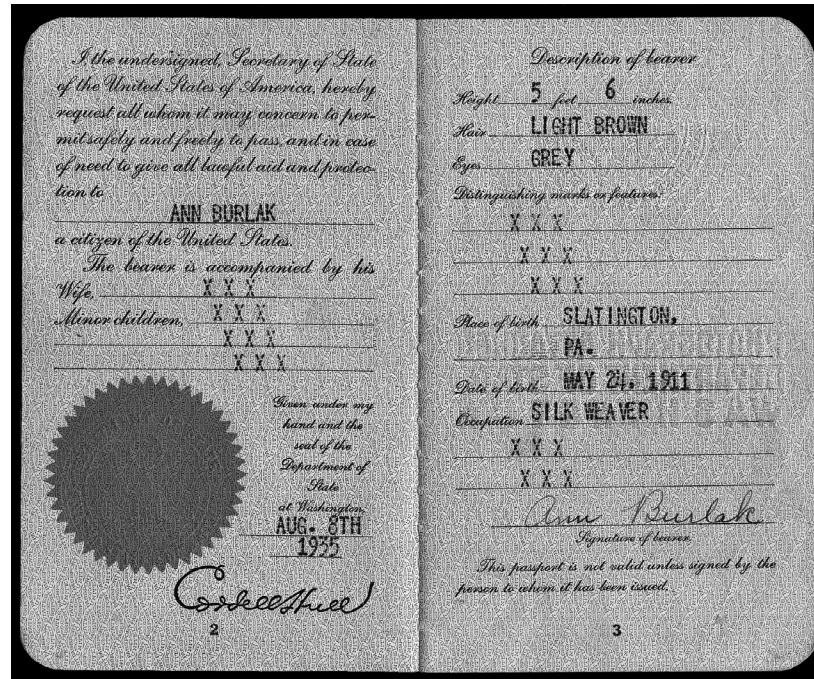 I, the undersigned, Secretary of State
of the United States of America, hereby
request all whom it may concern to per-
mit safely and freely to pass, and in case
of need to give all lawful aid and protec-
tion to
ANN BURLAK
a citizen of the United States.
The bearer is accompanied by his
Wife, X X X
Minor children, X X X
X X X
X X X
Given under my
hand and the
seal of the
Department of
State
at Washington,
AUG. 8TH
1935
Cordell Hull
2
Description of bearer
Height 5 feet 6 inches.
Hair LIGHT BROWN
Eyes GREY
Distinguishing marks or features:
X X X
X X X
X X X
Place of birth SLATINGTON,
PA.
Date of birth MAY 24, 1911
Occupation SILK WEAVER
X X X
X X X
Ann Burlak
Signature of bearer.
This passport is not valid unless signed by the
person to whom it has been issued.
3